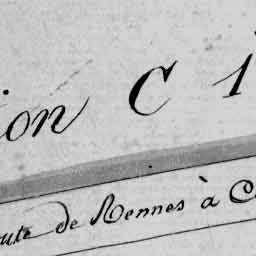 ion C 1
oute de Rennes à C